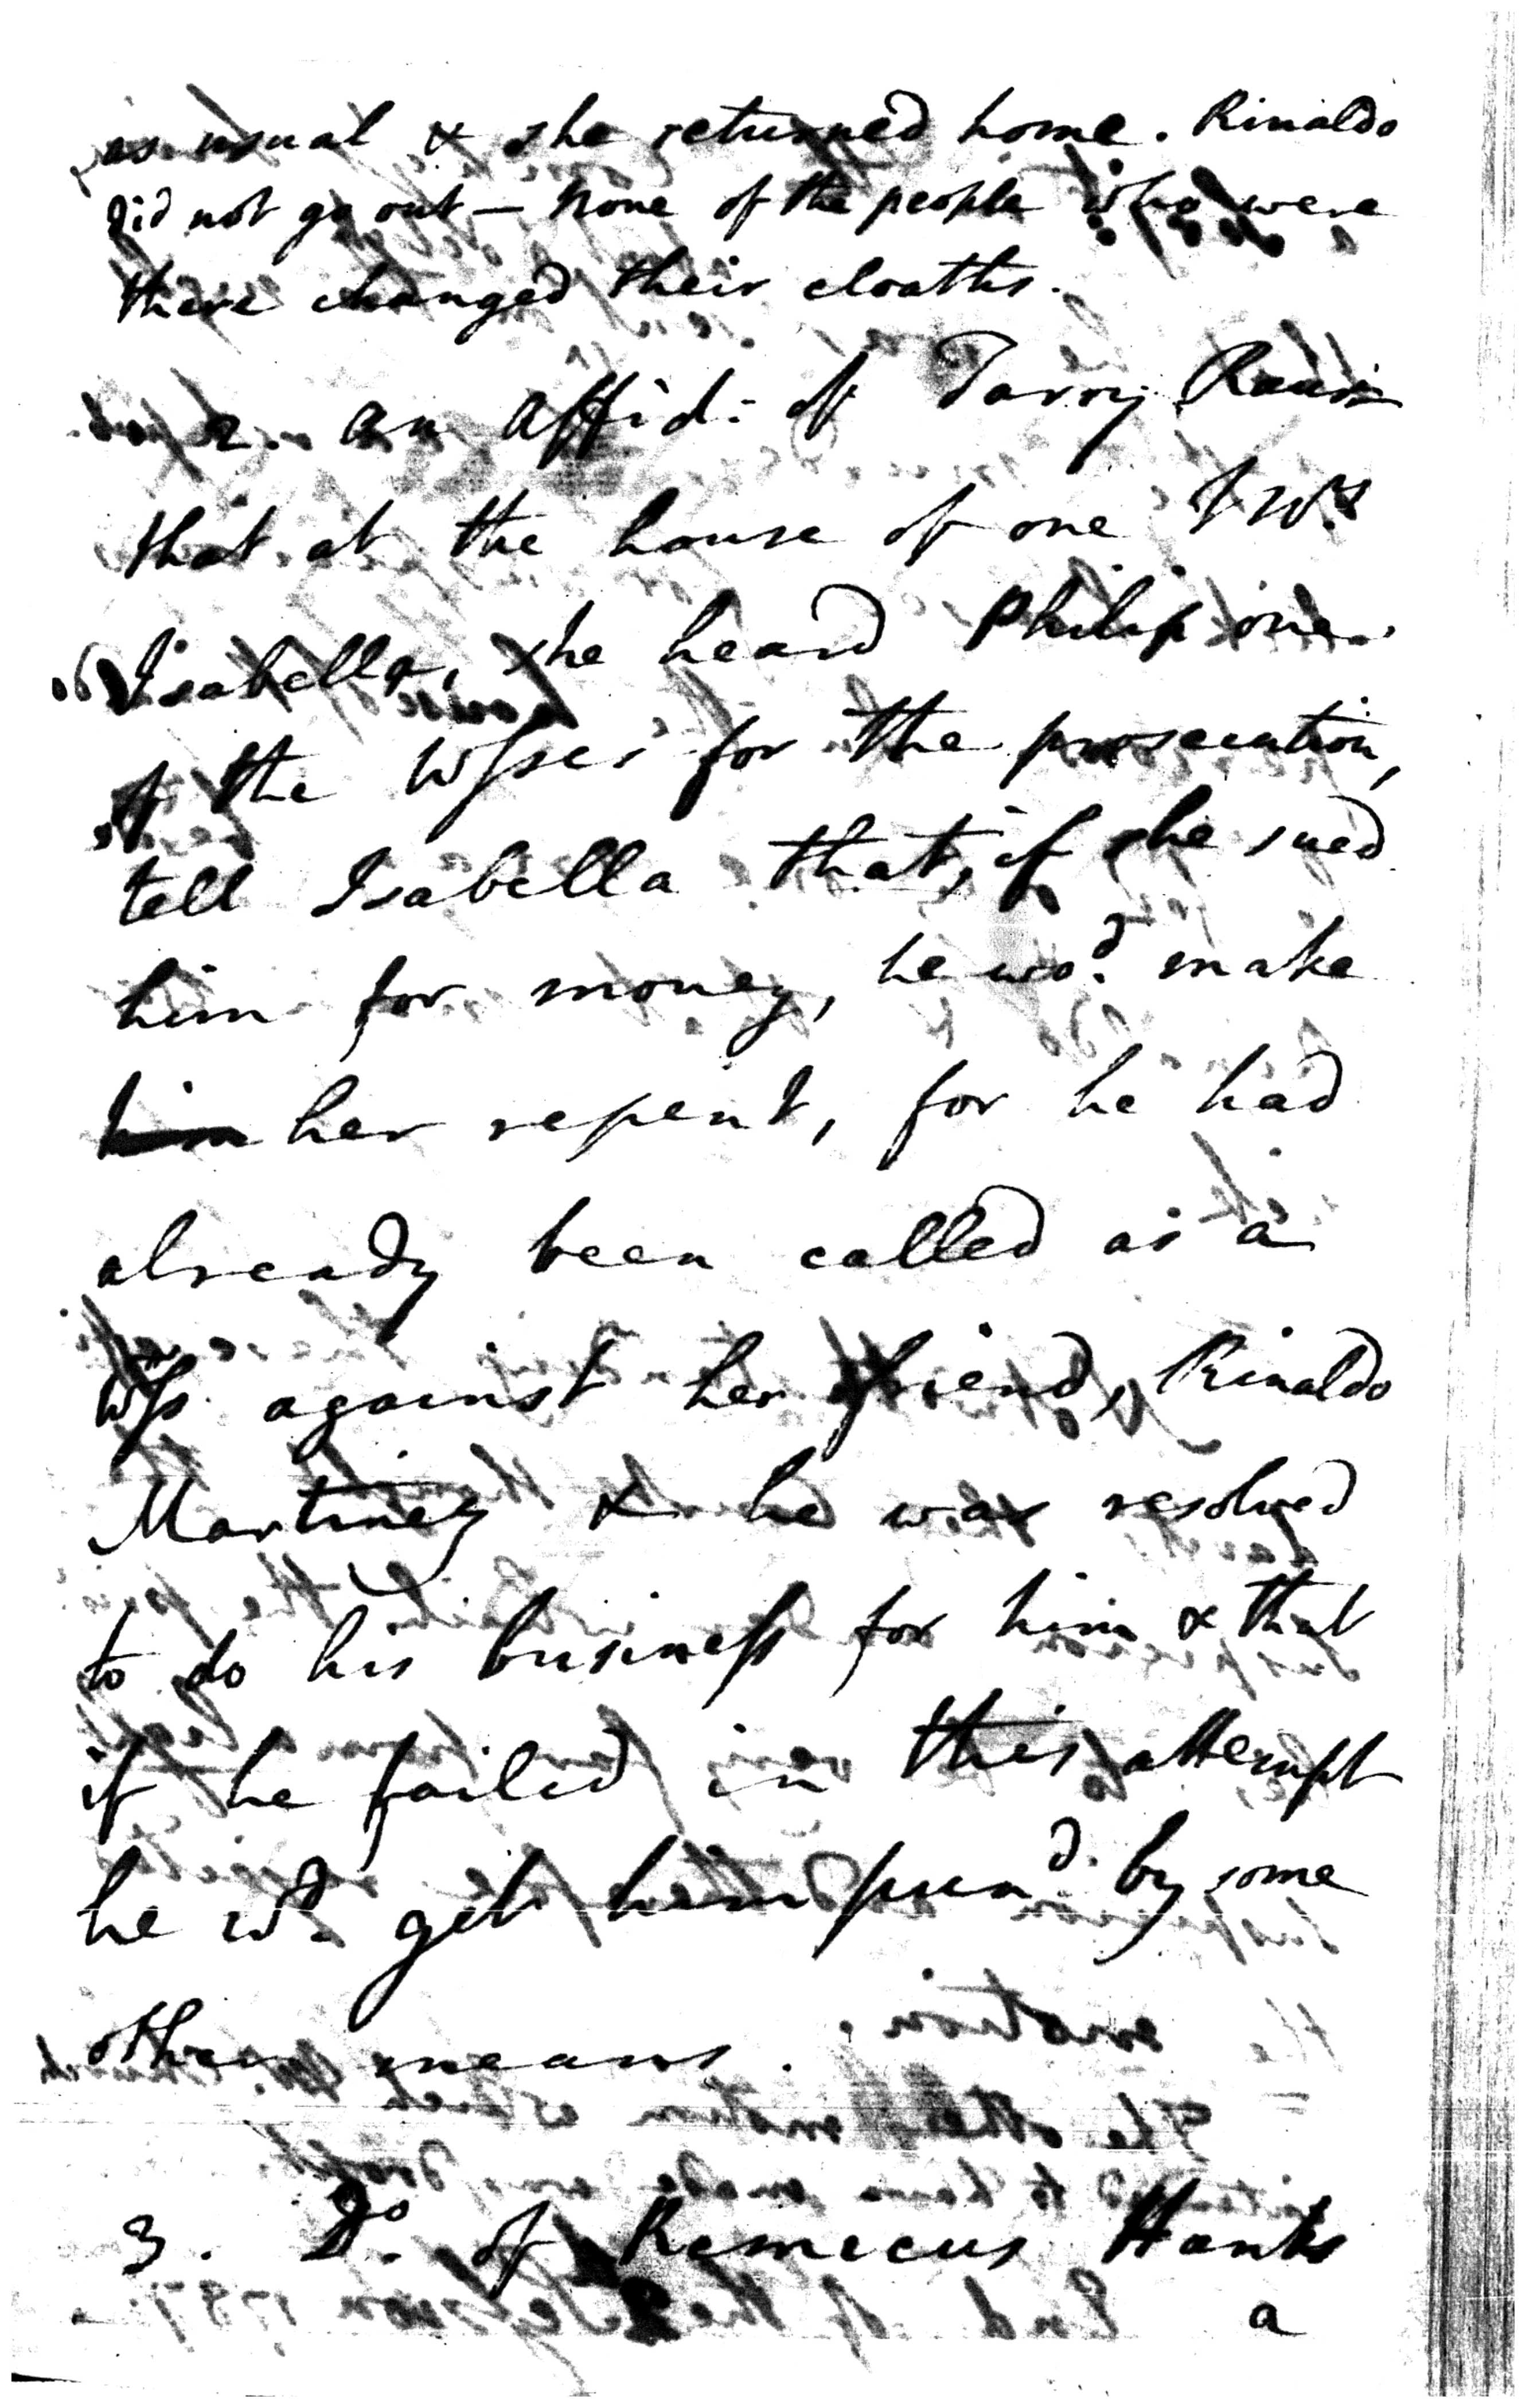 as usual & she returned home. Rinaldo
did not go out — none of the people who were
there changed their cloaths.
2. an Affid: of Tarry
that at the house of one
Isabella, she heard Philip one
of the Wsses for the prosecution,
tell Isabella that, if she sued
him for money, he wo.d make
him her repent, for he had
already been called as a
Wss against her friend, Rinaldo
Martinez & he was resolved
to do his business for him & that
if he failed in this attempt
he w.d get him pun.d by some
other means.
3. D.o of Remecus Hanks
a